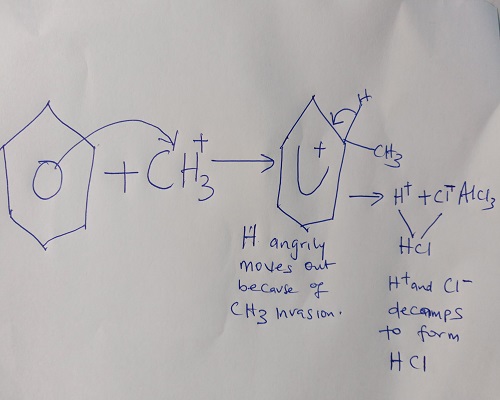 + CH3+ → + H
CH3
→ H+ + Cl- AlCl3
HCl
H angrily
moves out
because of
CH3 invasion.
H+ and Cl-
decamps
to form
HCl